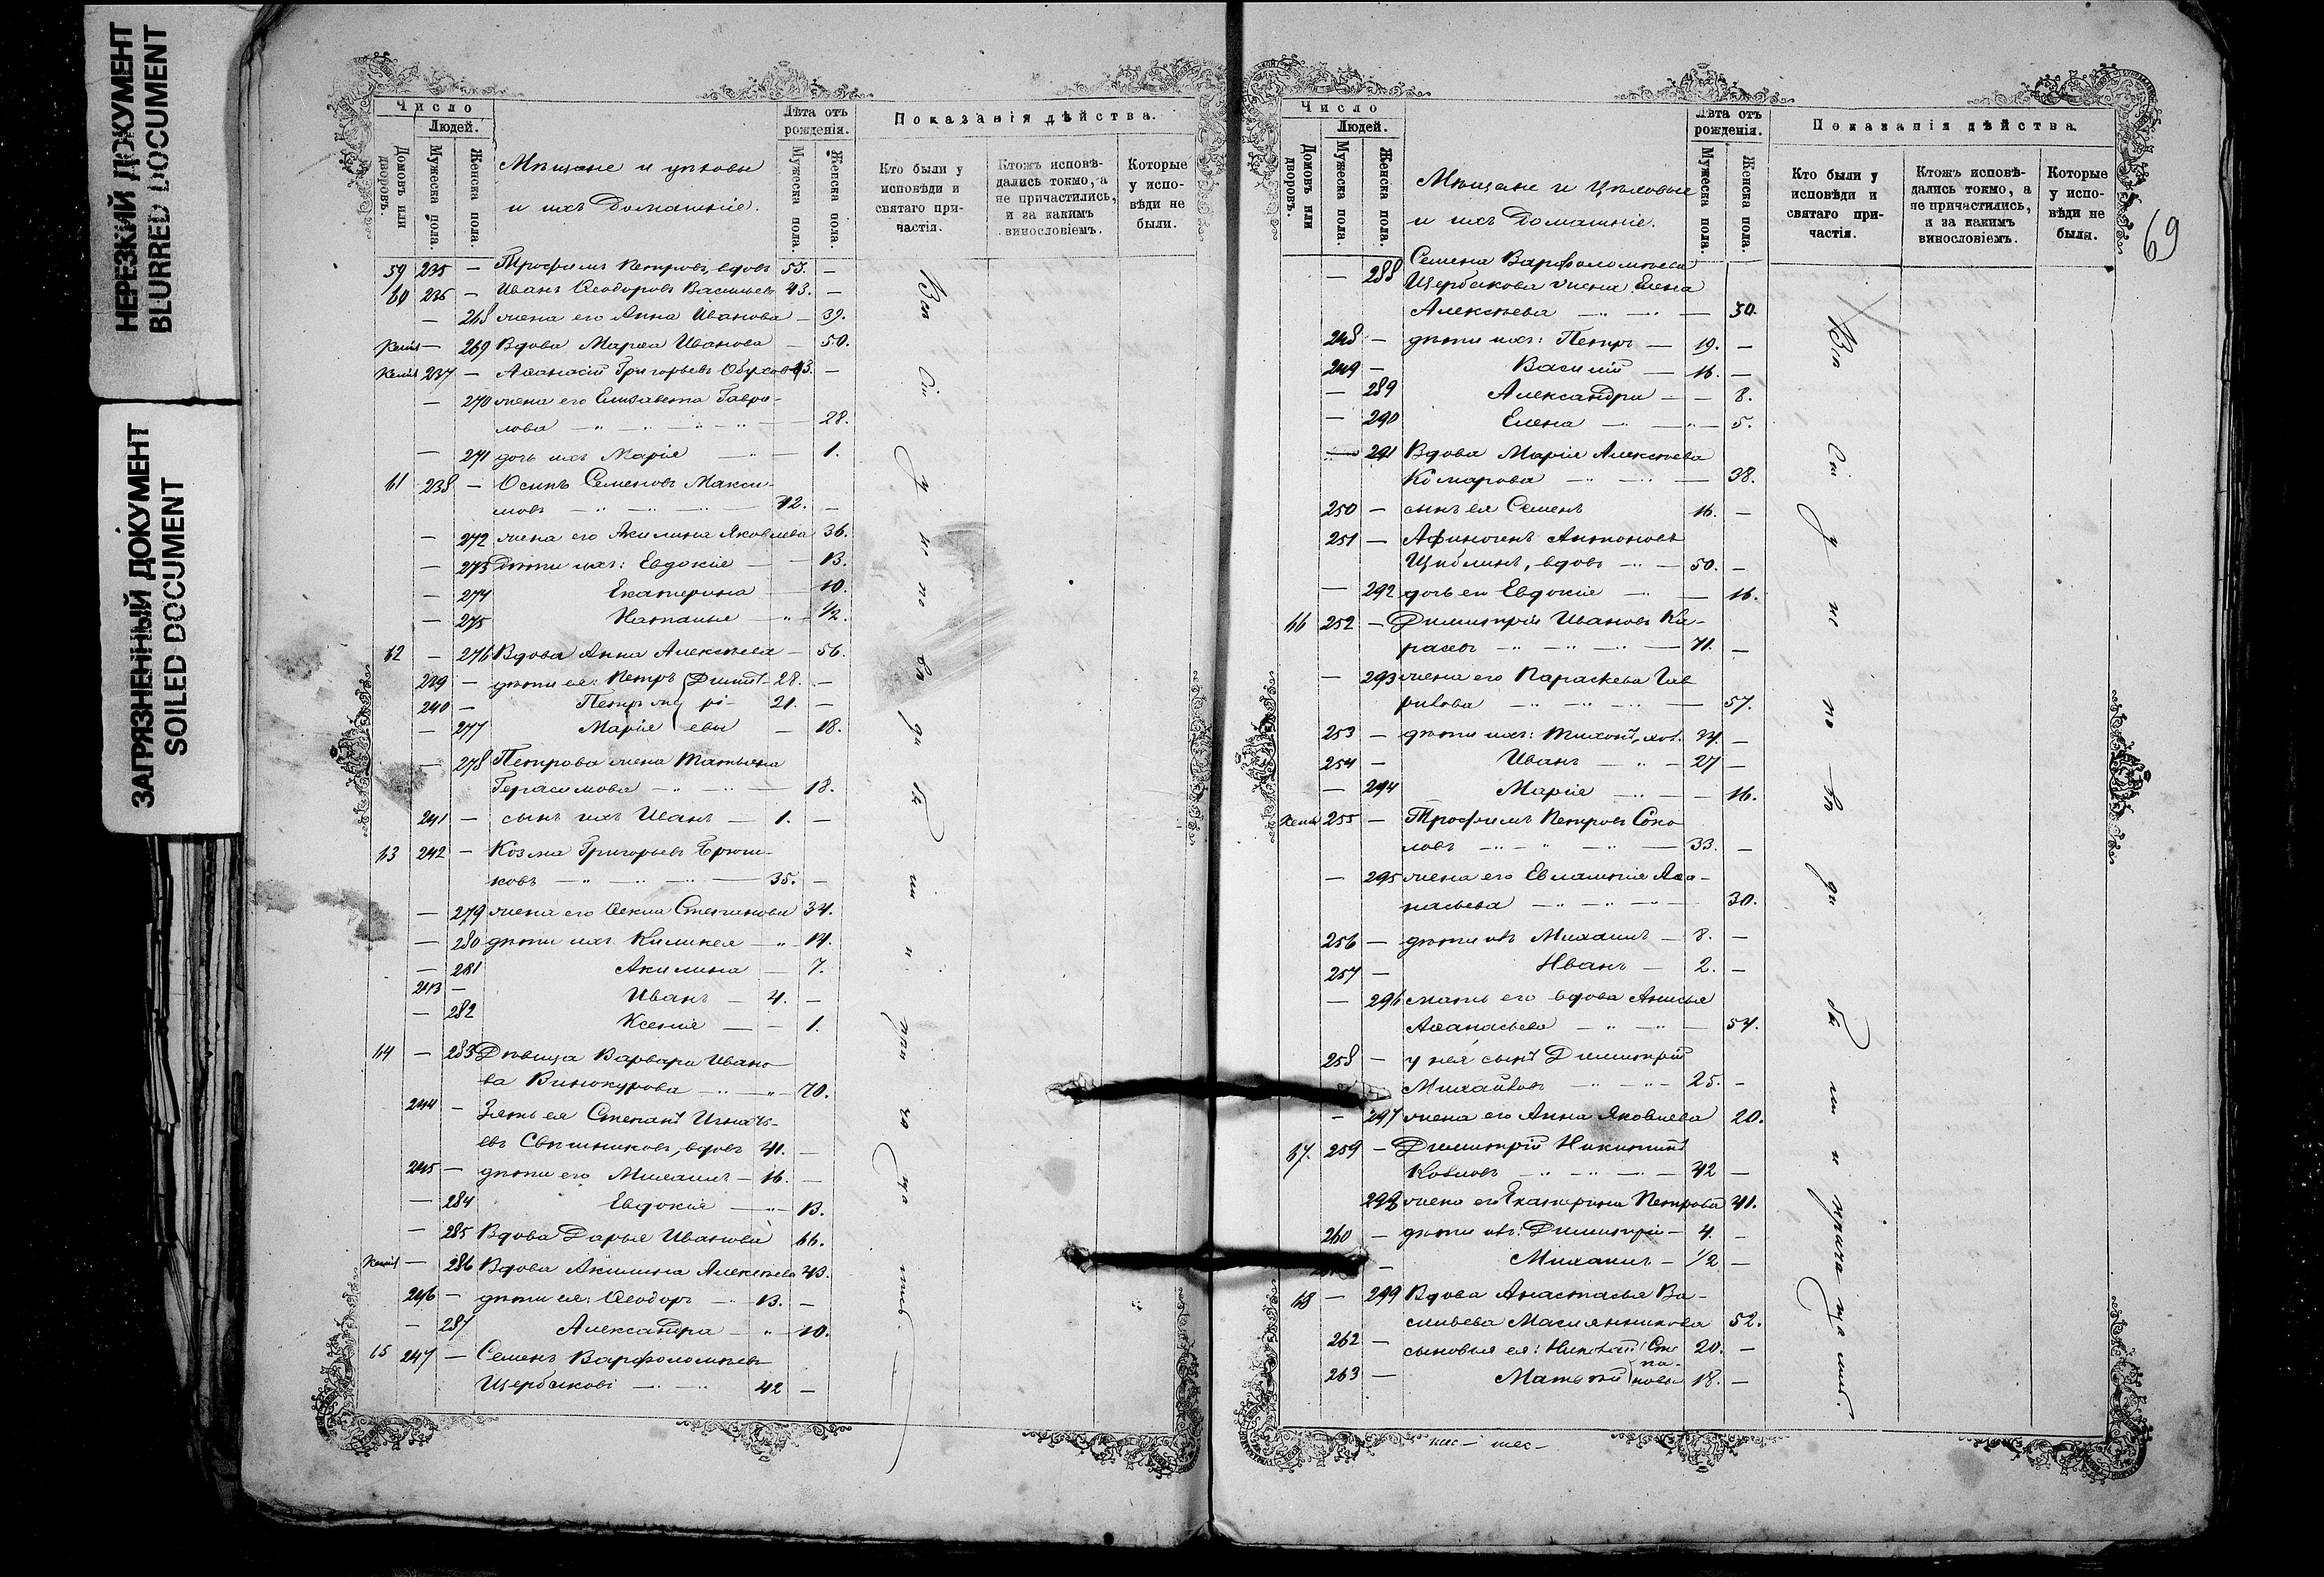 НЕРЕЗКИЙ ДОКУМЕНТ
BLURRED DOCUMENT
ЗАГРЯЗНЕННЫЙ ДОКУМЕНТ
SOILED DOCUMENT
Число
Людей.
Домовъ или дворовъ.
Мужеска пола.
Женска пола.
Мѣщане и цѣховые
и ихъ Домашніе.
Лѣта отъ рожденія.
Мужеска пола.
Женска пола.
Показанія дѣйства.
Кто были у исповѣди и святаго причастія.
Ктожъ исповѣдались токмо, а не причастились, и за какимъ винословіемъ.
Которые у исповѣди не были.
59 235 — Трофимъ Петровъ, вдовъ 53. —
60 236 — Иванъ Ѳеодоровъ Васильевъ 43. —
— 268 жена его Анна Иванова — 39.
— 269 Вдова Марѳа Иванова — 50.
237 — Аѳанасій Григорьевъ Обухов 43. —
— 270 жена его Елизавета Гаври-
лова — 28.
— 271 дочь ихъ Марія — 1.
61 238 — Осипъ Семеновъ Макси-
мовъ — 42. —
— 272 жена его Акилина Яковлева 36.
— 273 Дѣти ихъ: Евдокія — 13.
— 274 Екатерина — 10.
— 275 Наталья — 1/2.
62 — 276 Вдова Анна Алексѣева — 56.
239 — дѣти ея: Петръ Димит- 28. —
240 — Петръ же рі- 21. —
— 277 Марія евы — 18.
— 278 Петрова жена Татьяна
Герасимова — 18.
241 — сынъ ихъ Иванъ — 1. —
63 242 — Козма Григорьевъ Брюш-
ковъ — 35. —
— 279 жена его Ѳекла Степанова 34.
— 280 дѣти ихъ — 14.
— 281 Акилина — 7.
243 — Иванъ — 4. —
— 282 Ксенія — 1.
64 — 283 Дѣвица Варвара Ивано-
ва Винокурова — 70.
244 — Зять ея Степанъ Игнать-
евъ Свѣшниковъ, вдовъ 41. —
245 — дѣти его Михаилъ — 16. —
— 284 Евдокія — 13.
— 285 Вдова Дарья Иванова 66.
— 286 Вдова Акилина Алексѣева 43.
246 — дѣти ея: Ѳеодоръ — 13. —
— 287 Александра — 10.
65 247 — Семенъ Варфоломѣевъ
Щербаковъ — 42 —
69
Число
Людей.
Домовъ или дворовъ.
Мужеска пола.
Женска пола.
Мѣщане и Цѣховые
и ихъ Домашніе.
Лѣта отъ рожденія.
Мужеска пола.
Женска пола.
Показанія дѣйства.
Кто были у исповѣди и святаго причастія.
Ктожъ исповѣдались токмо, а не причастились, и за какимъ винословіемъ.
Которые у исповѣди не были.
— 288 Семена Варфоломѣева
Щербакова жена Елена
Алексѣева — 50.
248 — дѣти ихъ: Петръ — 19. —
249 — Василій — 16. —
— 289 Александра — 8.
— 290 Елена — 5.
— 291 Вдова Марія Алексѣева
Комарова — 38.
250 — сынъ ея Семенъ 16. —
251 — Афиногенъ Антоновъ
Щиблинъ, вдовъ — 50. —
— 292 дочь его Евдокія — 16.
66 252 — Димитрій Ивановъ Ка-
расевъ — 71. —
— 293 жена его Параскева Гав
рилова — 57.
253 — дѣти ихъ: Тихонъ, хол. 34. —
254 — Иванъ — 27 —
— 294 Марія — 16.
255 — Трофимъ Петровъ Соко
ловъ — 33. —
— 295 жена его Евлампія Аѳа-
насьева — 30.
256 — дѣти ихъ Михаилъ — 8. —
257 — Иванъ — 2. —
— 296 мать его вдова Анисья
Аѳанасьева — 54.
258 — у нея сынъ Димитрій
Михайловъ — 25. —
— 297 жена его Анна Яковлева 20.
67. 259 — Димитрій Никитинъ
Козловъ — 42 —
298 жена его Екатерина Петрова 41.
260 — дѣти ихъ: Димитрій — 4. —
— Михаилъ — 1/2 —
68 — 299 Вдова Анастасья Ва-
сильева Маслянникова 52.
262 — сыновья ея: Николай Сте 20. —
263 — Матвѣй па-новы 18. —